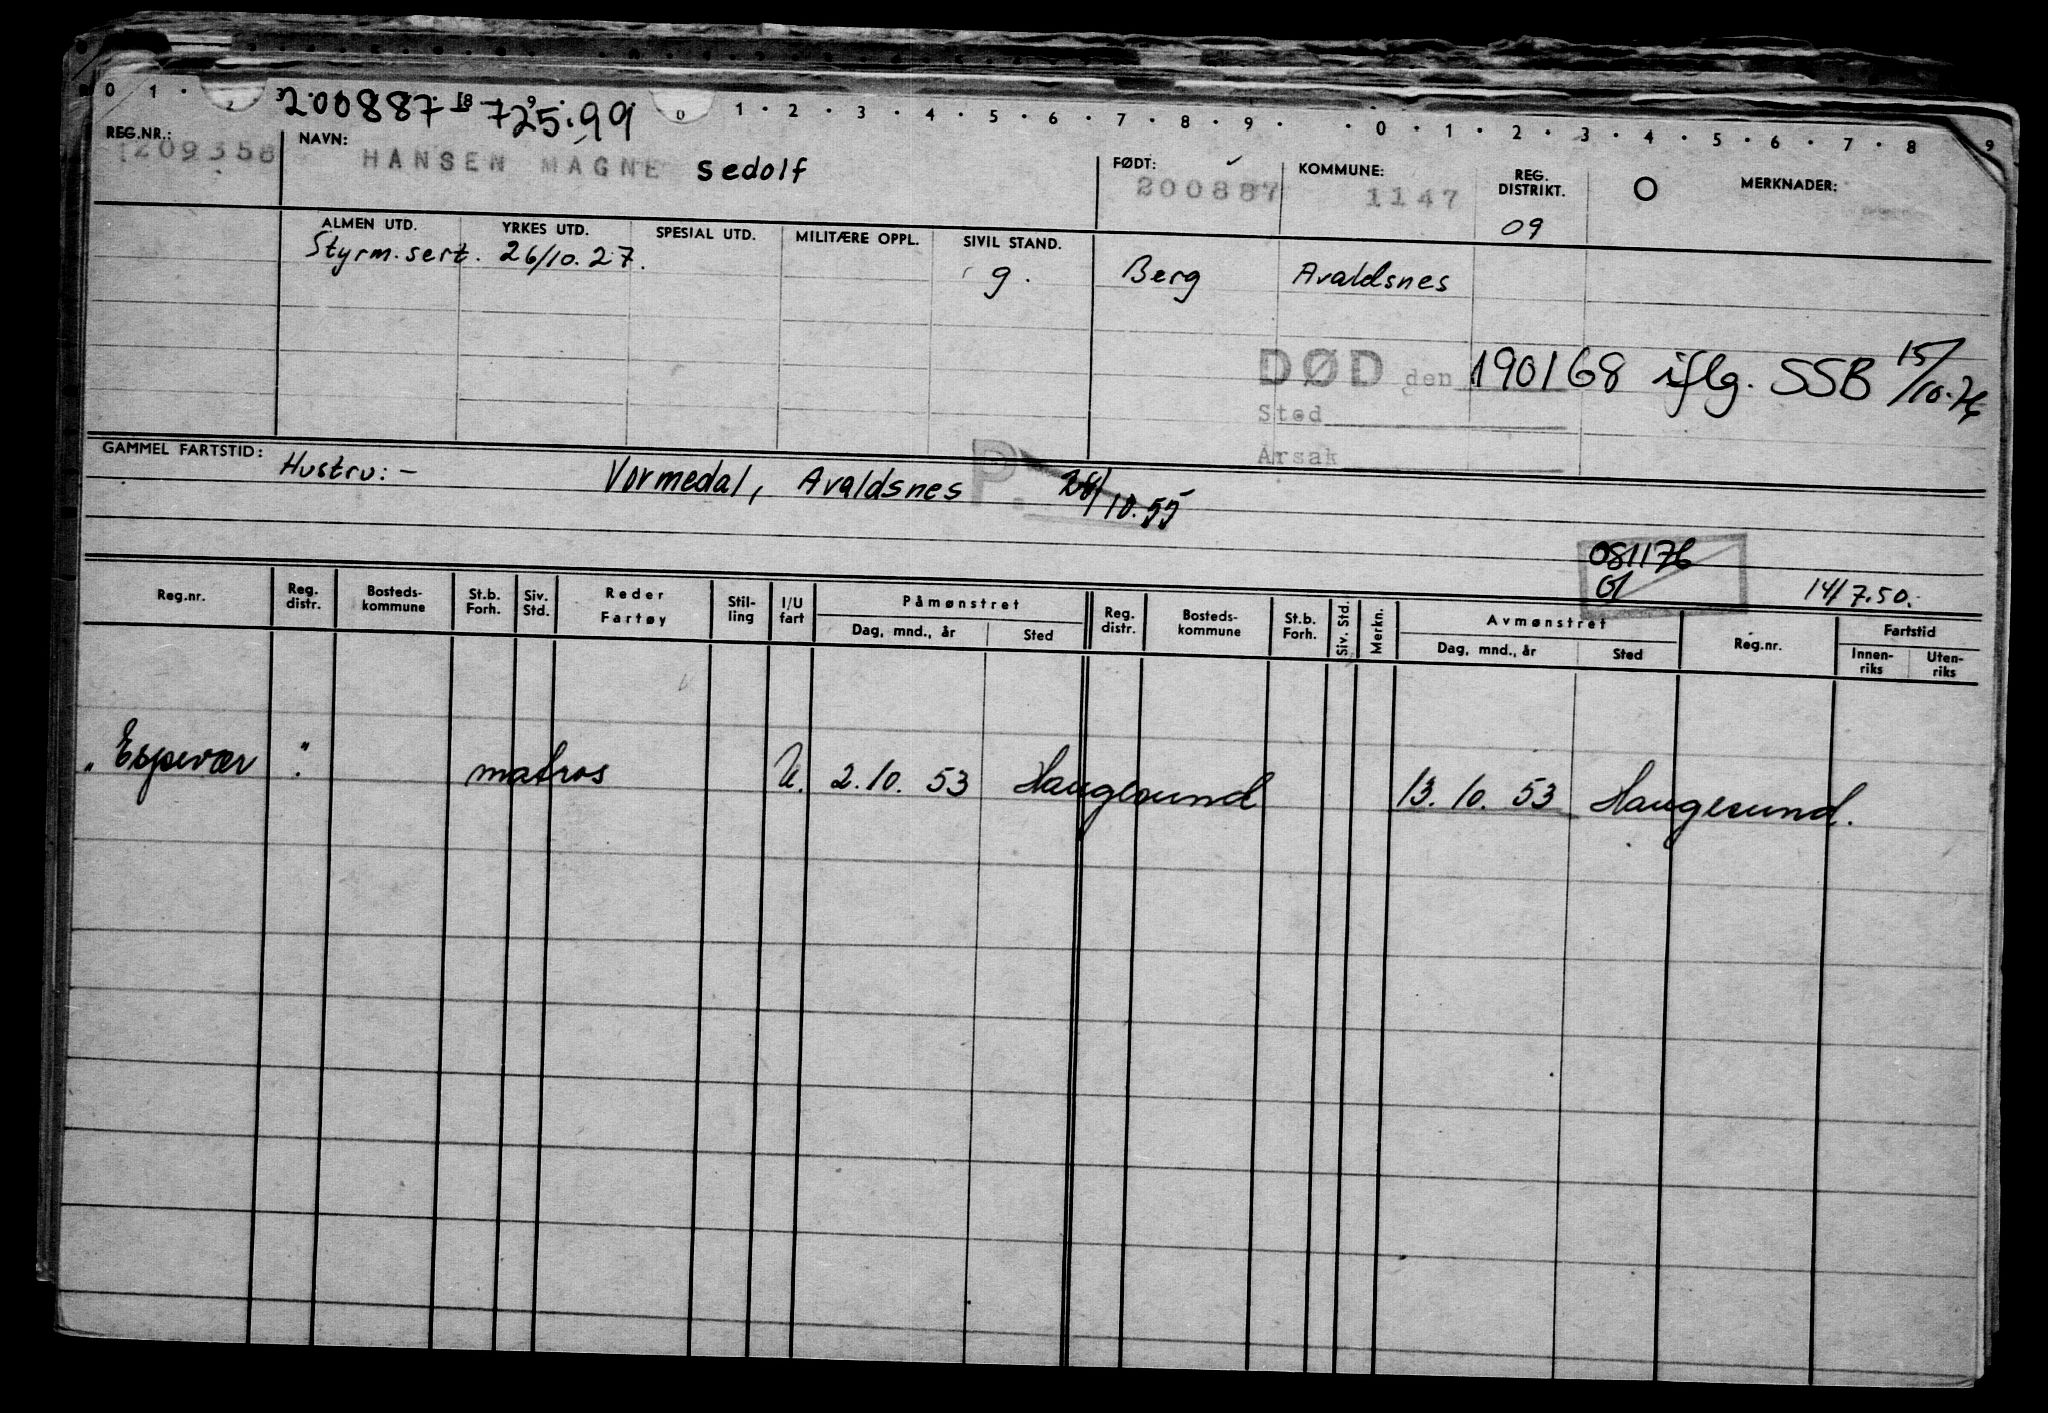 200887 18 725.99
0 1 2 0 1 2 3 4 5 6 7 8 9 0 1 2 3 4 5 6 7 8 9
REG.NR.: NAVN: FØDT: KOMMUNE: REG. DISTRIKT. O MERKNADER:
1209356 HANSEN MAGNE Sedolf 200887 1147 09
ALMEN UTD. YRKES UTD. SPESIAL UTD. MILITÆRE OPPL. SIVIL STAND.
Styrm. sert. 26/10.27. g. Berg Avaldsnes
DØD den 190168 iflg. SSB 15/10.76
Sted
Årsak
GAMMEL FARTSTID: Hustru:- Vormedal, Avaldsnes P. 28/10.55
081176
01 14/7.50.
Reg.nr. Reg. distr. Bosteds-kommune St.b. Forh. Siv. Std. Reder Fartøy Stil-ling I/U fart Påmønstret Reg. distr. Bosteds-kommune St.b. Forh. Siv. Std. Merkn. Avmønstret Reg.nr. Fartstid
Dag, mnd., år Sted Dag, mnd., år Sted Innen-riks Uten-riks
"Espevær" matros U. 2.10.53 Haugesund 13.10.53 Haugesund.